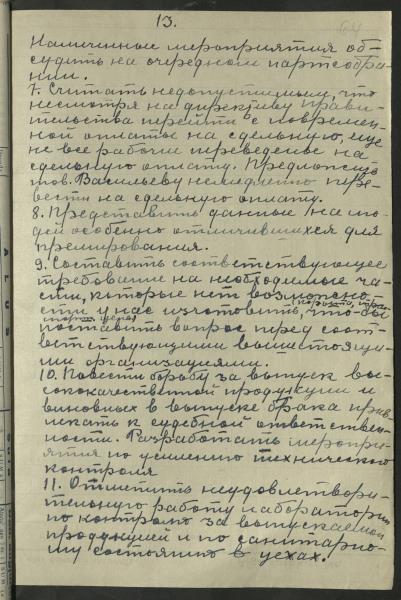 13.
Намеченные мероприятия об-
судить на очередном партсобра-
нии.
7. Считать недопустимым, что
несмотря на директиву прави-
тельства перейти с повремен-
ной оплаты на сдельную, еще
не все рабочие переведены на
сдельную оплату. Предложить
тов. Васильеву немедленно пере-
вести на сдельную оплату.
8. Представить данные на лю-
дей особенно отличившихся для
премирования.
9. Составить соответствующее
требование на необходимые ча-
сти, которые нет возможно-
сти у нас изготовить, что-бы
поставить вопрос перед соот-
ветствующими вышестоящи-
ми организациями.
10. Повести борьбу за выпуск вы-
сококачественной продукции и
виновных в выпуске брака прив-
лекать к судебной ответствен-
ности. Разработать меропри-
ятия по усилению технического
контроля
11. Отметить неудовлетвори-
тельную работу лаборатории
по контролю за выпускаемой
продукцией и по санитарно-
му состоянию в цехах.